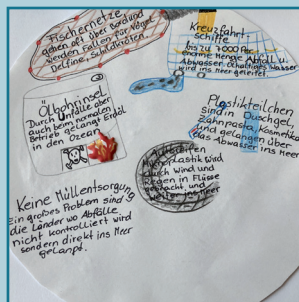 Fischernetze
gehen oft über Bord und
werden Fallen für Vögel
Delfine, Schildkröten.
Kreuzfahrt-
schiffe
bis zu 7000 Per.
enorme Menge Abfall u.
Abwasser. ölhaltiges Wasser
wird ins Meer geleitet.
Ölbohrinsel
Durch Unfälle aber
auch beim normalen
Betrieb gelangt Erdöl
in den Ozean
Plastikteilchen
sind in Duschgel,
Zahnpasta, Kosmetika
und gelangen über
das Abwasser ins Meer
Autoreifen
Mikroplastik wird
durch Wind und
Regen in Flüsse
gebracht, und
weiter ins Meer
Keine Müllentsorgung
Ein großes Problem sind
die Länder wo Abfälle
nicht kontrolliert wird
sondern direkt ins Meer
gelangt.